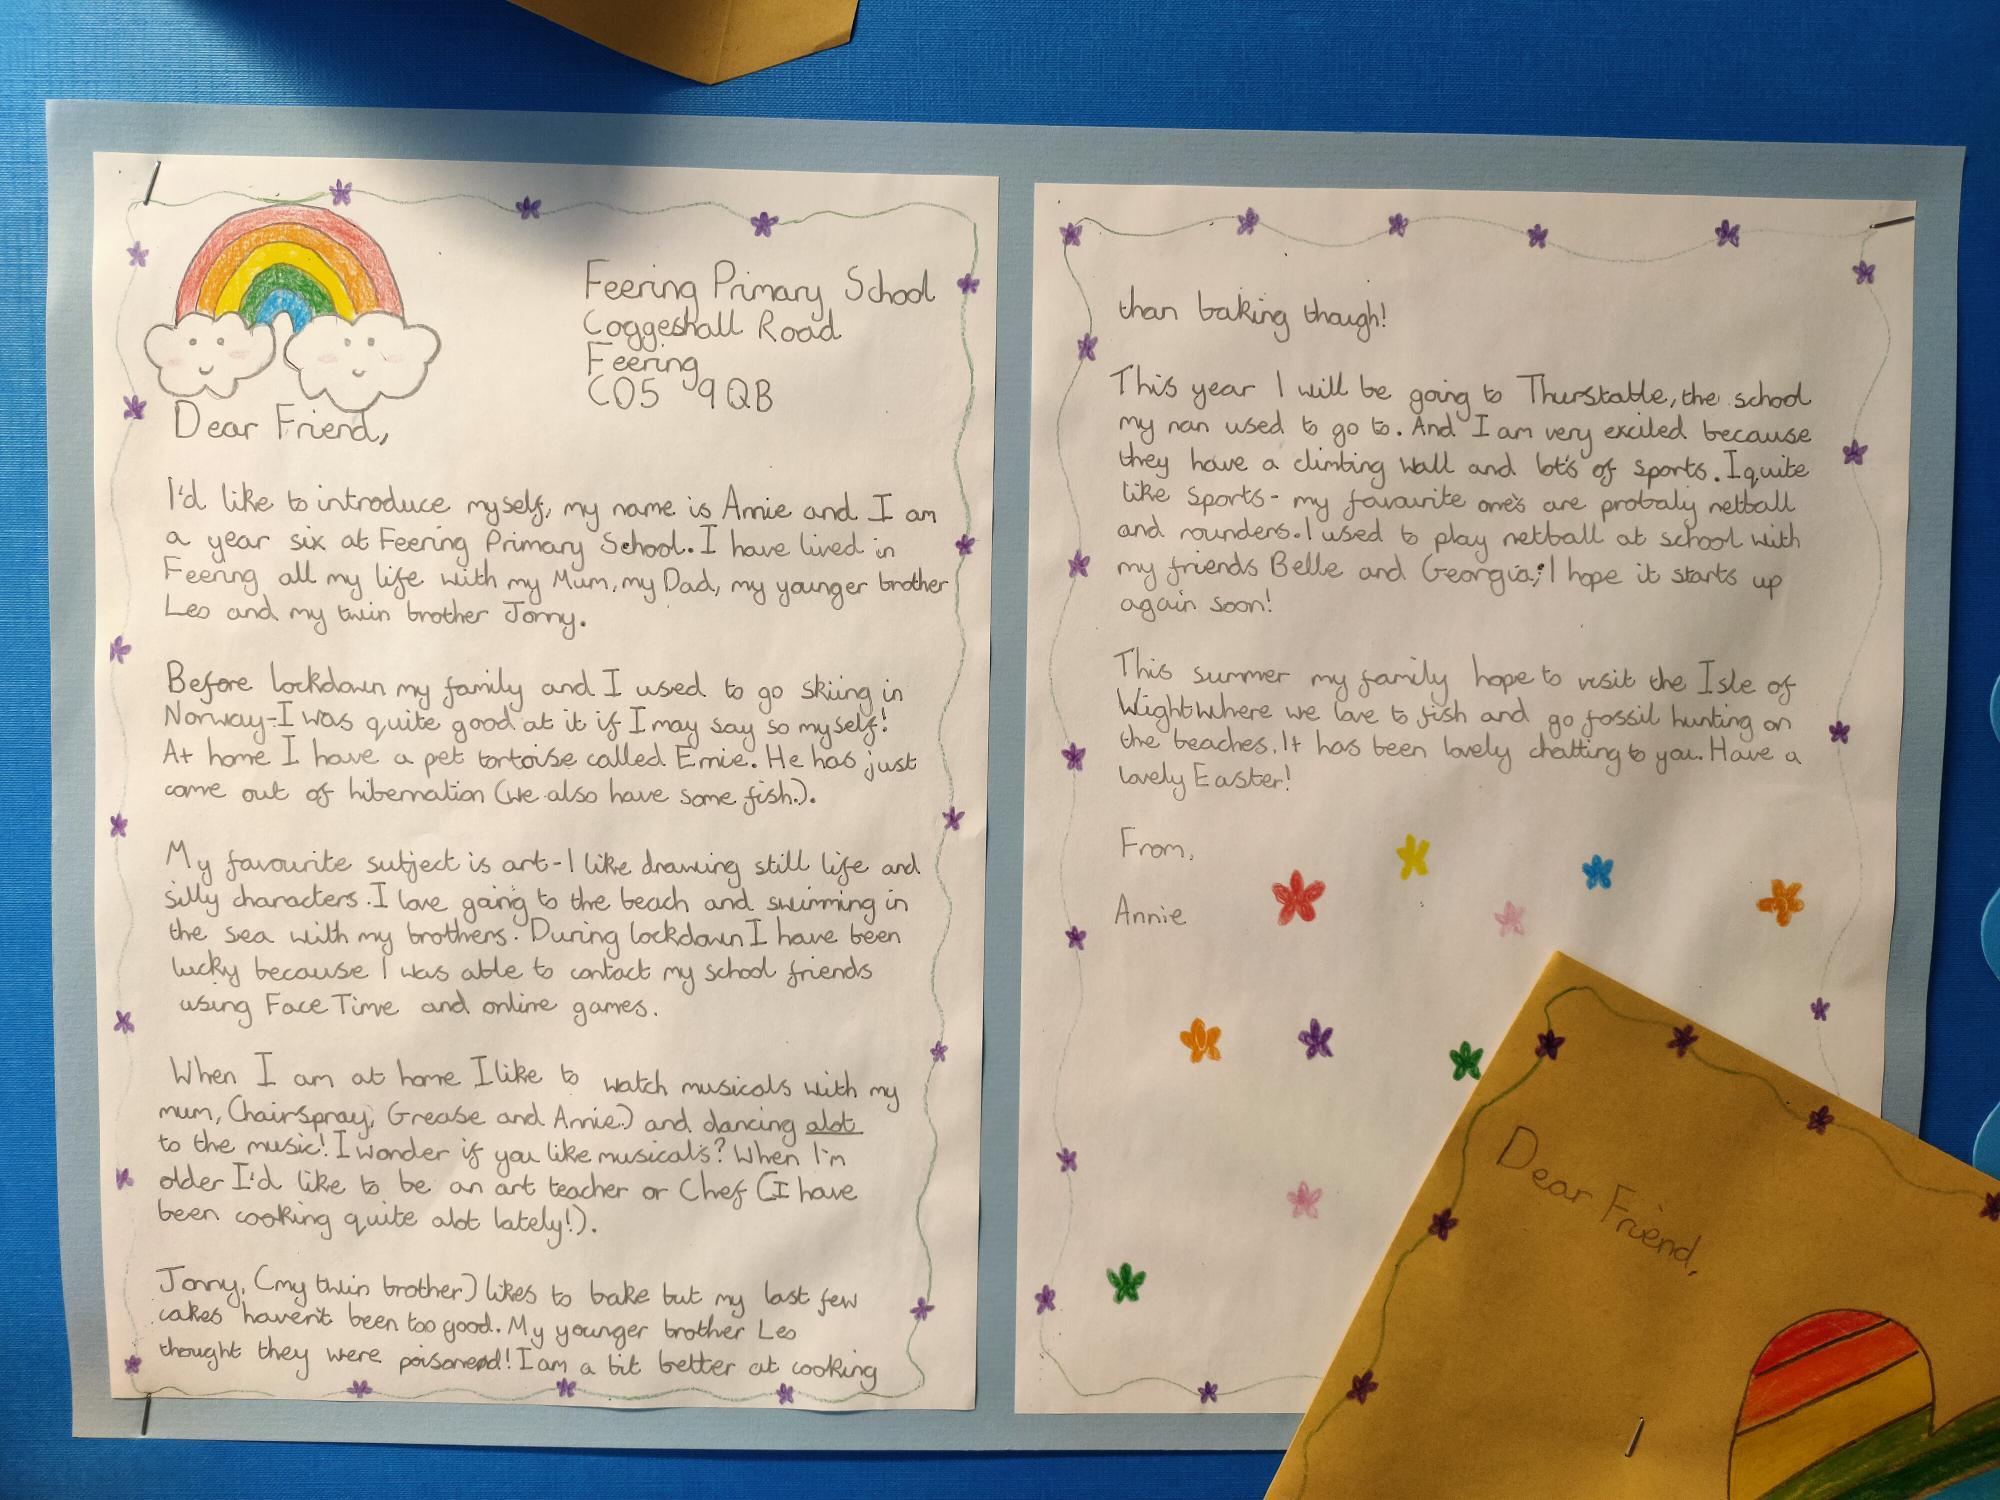 Feering Primary School
Coggeshall Road
Feering
CO5 9QB
Dear Friend,
I'd like to introduce myself, my name is Annie and I am
a year six at Feering Primary School. I have lived in
Feering all my life with my Mum, my Dad, my younger brother
Leo and my twin brother Jonny.
Before lockdown my family and I used to go skiing in
Norway-I was quite good at it if I may say so myself!
At home I have a pet tortoise called Ernie. He has just
come out of hibernation (we also have some fish.).
My favourite subject is art-I like drawing still life and
silly characters. I love going to the beach and swimming in
the sea with my brothers. During lockdown I have been
lucky because I was able to contact my school friends
using FaceTime and online games.
When I am at home I like to watch musicals with my
mum, (hairspray, Grease and Annie) and dancing alot
to the music! I wonder if you like musicals? When I'm
older I'd like to be an art teacher or Chef (I have
been cooking quite alot lately!).
Jonny, (my twin brother) likes to bake but my last few
cakes haven't been too good. My younger brother Leo
thought they were poisoned! I am a bit better at cooking
than baking though!
This year I will be going to Thurstable, the school
my nan used to go to. And I am very excited because
they have a climbing wall and lot's of sports. I quite
like sports- my favourite one's are probaly netball
and rounders. I used to play netball at school with
my friends Belle and Georgia; I hope it starts up
again soon!
This summer my family hope to visit the Isle of
Wight where we love to fish and go fossil hunting on
the beaches. It has been lovely chatting to you. Have a
lovely Easter!
From,
Annie
Dear Friend,